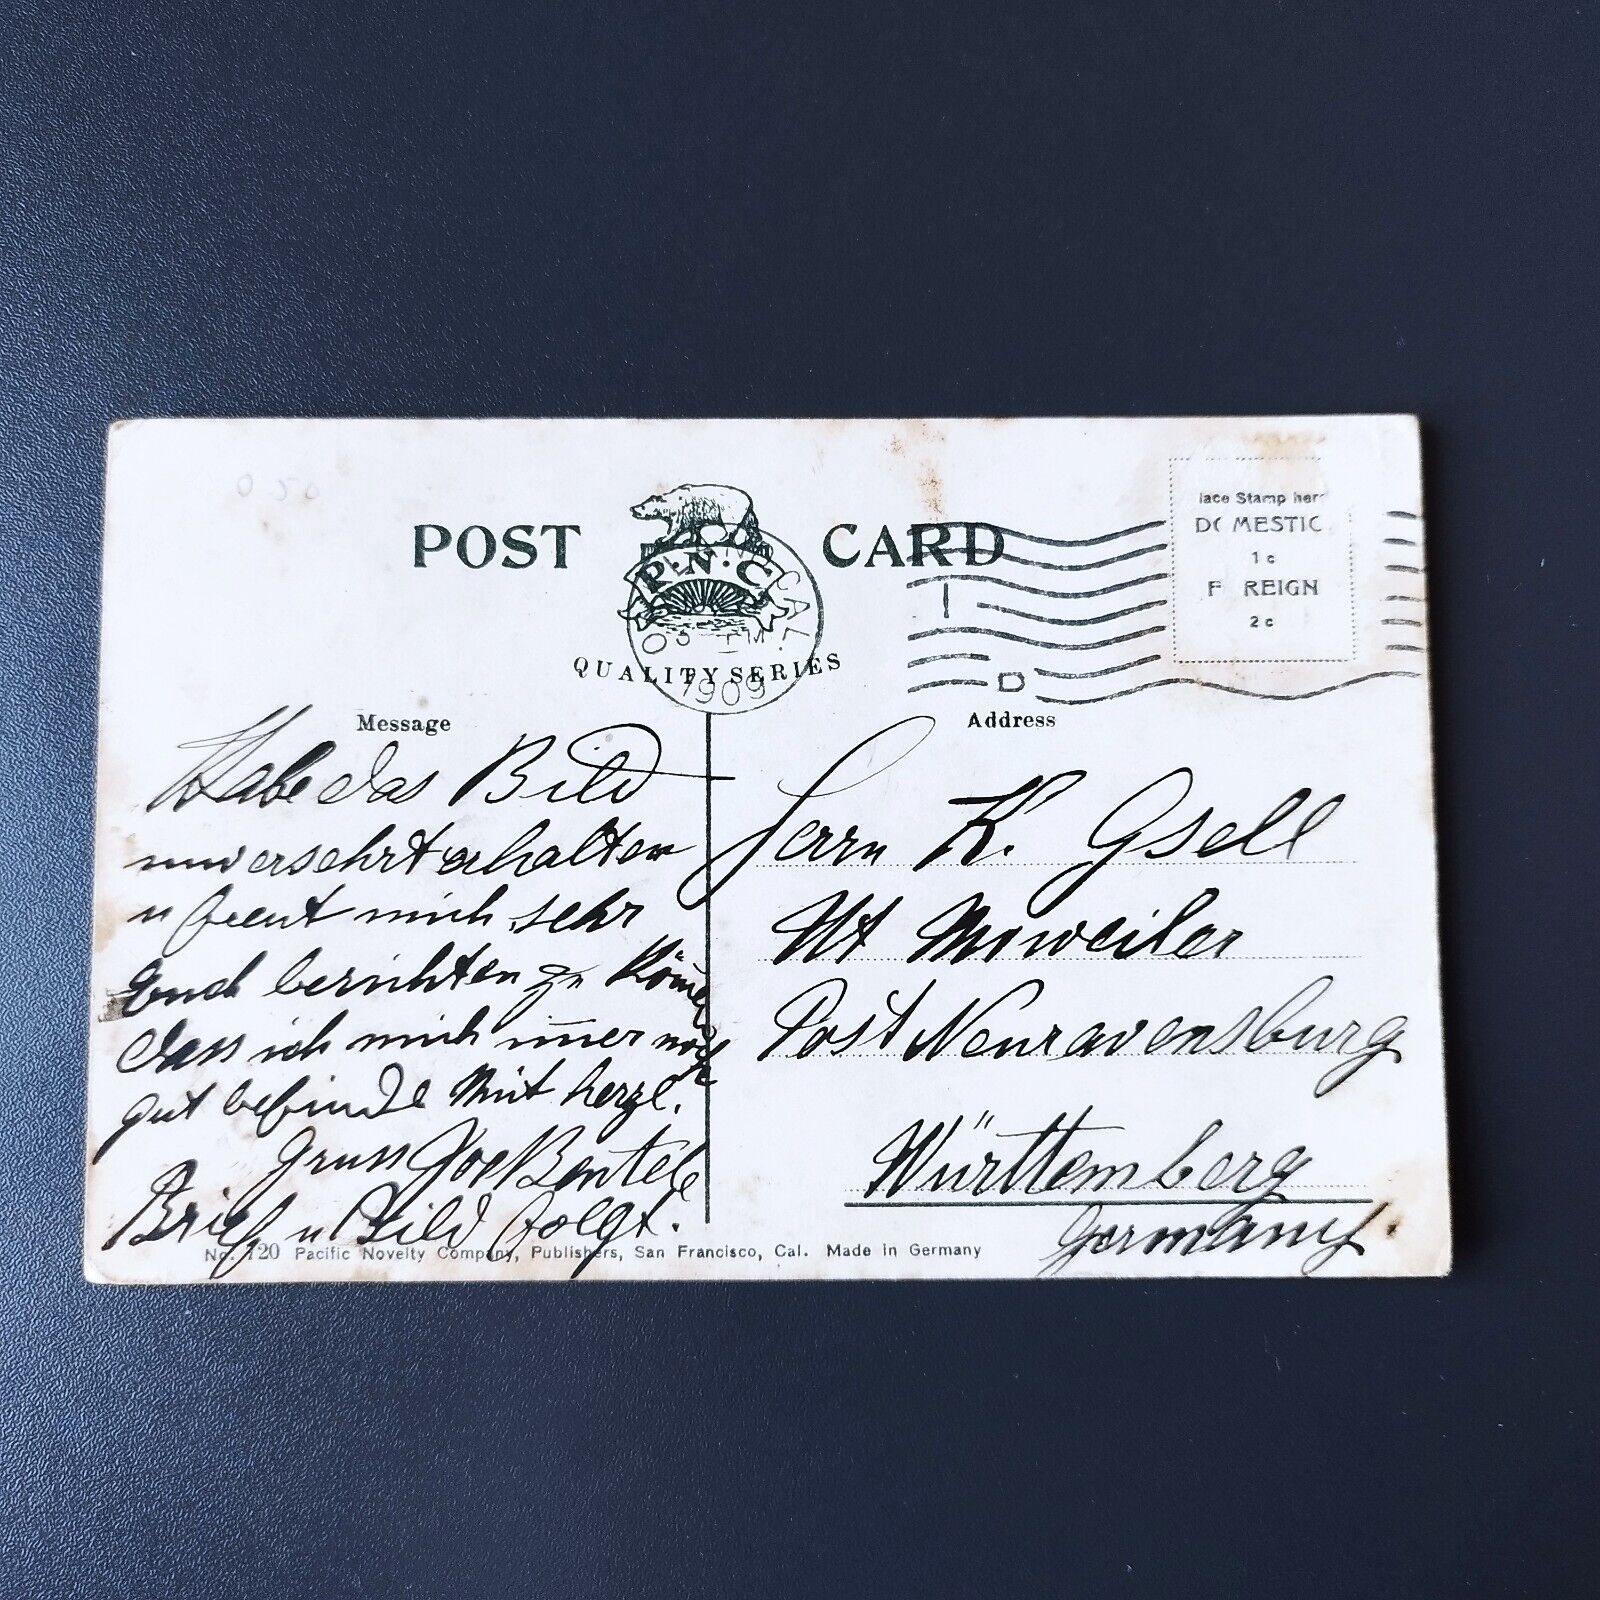 POST CARD
P.N.C.
QUALITY SERIES
1909
lace Stamp her
DOMESTIC
1c
F REIGN
2c
I
D
Message
Habe das Bild
unversehrt erhalten
u freut mich sehr
Euch berichten zu Können
dass ich mich immer noch
gut befinde Mit herzl.
Gruss Jos Bentele
Brief u Bild folgt.
Address
Herrn K. Gsell
Post Neuravensburg
Württemberg
Germany.
No. 720 Pacific Novelty Company, Publishers, San Francisco, Cal. Made in Germany